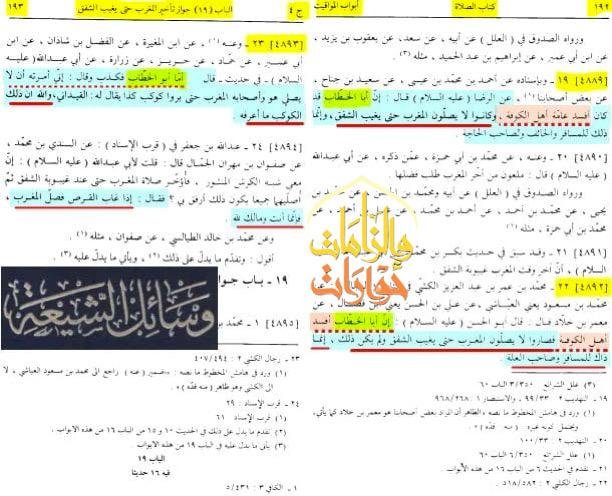 ١٩٢
كتاب الصلاة
أبواب المواقيت
ورواه الصدوق في ( العلل ) عن أبيه ، عن سعد، عن يعقوب بن يزيد ،
عن ابن أبي عمير ، عن إبراهيم بن عبد الحميد ، مثله (٣) .
[٤٨٨٩] ١٩ ـ وبإسناده عن أحمد بن محمد بن عيسى ، عن سعيد بن جناح ،
عن بعض أصحابنا (١) ، عن الرضا ( عليه السلام ) قال : إنّ أبا الخطّاب قد
كان أفسد عامّة أهل الكوفة ، وكانوا لا يصلّون المغرب حتى يغيب الشفق ، وإنّما
ذلك للمسافر والخائف ولصاحب الحاجة .
[٤٨٩٠] ٢٠ ـ وعنه ، عن محمّد بن أبي حمزة ، عمّن ذكره ، عن أبي عبدالله
( عليه السلام ) قال : قال : ملعون من أخّر المغرب طلب فضلها
ورواه الصدوق في ( العلل ) عن أبيه ومحمد بن الحسن ، عن محمد بن
يحيى ، عن محمد بن أحمد ، عن أحمد بن محمد ، عن
محمد بن أبي حمزة ، مثله (١) .
[٤٨٩١] ٢١ ـ وقد سبق في حديث بكر بن محمد ، عن أبي عبدالله ( عليه
السلام ) ، أنّ آخر وقت المغرب غيبوبة الشفق .
[٤٨٩٢] ٢٢ ـ محمد بن عمر بن عبد العزيز الكشي في
محمّد بن مسعود يعني العياشي ، عن علي بن الحسن يعني ابن فضّال ، عن
معمر بن خلّاد قال : قال أبو الحسن ( عليه السلام ) : إنّ أبا الخطّاب أفسد
أهل الكوفة فصاروا لا يصلّون المغرب حتى يغيب الشفق ولم يكن ذلك ، إنّما
ذاك للمسافر وصاحب العلة .
(٣) علل الشرائع ٣/٣٥٠ الباب ٦٠
١٩ ـ التهذيب ٢ : ٩٩/٣٣ ، والاستبصار ١ : ٩٦٨/٢٦٨
(١) ورد في هامش المخطوط ما نصه «
٢٠ ـ التهذيب ٢ : ١٠٠/٣٣
(١) علل الشرائع ٦/٣٥٠ الباب ٦٠
٢١ ـ تقدم في الحديث ٦ من الباب ١٦ من هذه الأبواب .
٢٢ ـ رجال الكشي ٢ : ٥١٨/٥٨٢
والزامات
حوارات
ج ٤
الباب (١٩) جواز تأخير المغرب حتى يغيب الشفق
١٩٣
[٤٨٩٣] ٢٣ ـ وعنه (١) ، عن ابن المغيرة ، عن الفضل بن شاذان ، عن ابن
أبي عمير ، عن حريز ، عن زرارة ، عن أبي عبدالله ( عليه
السلام ) ـ في حديث ـ قال : أمّا أبو الخطّاب فكذب وقال : إنّي أمرته أن لا
يصلي هو وأصحابه المغرب حتى يروا كوكب كذا يقال له : القيداني ، والله إن ذلك
الكوكب ما أعرفه .
[٤٨٩٤] ٢٤ ـ عبدالله بن جعفر في ( قرب الإسناد ) : عن السندي بن محمّد ،
عن صفوان بن مهران الجمّال قال : قلت لأبي عبدالله ( عليه السلام ) : إنّ
معي شبه الكرش المنثور ، فأؤخّر صلاة المغرب حتى عند غيبوبة الشفق ثمّ
أصلّيهما جميعاً يكون ذلك أرفق بي ؟ فقال : إذا غاب القرص فصلّ المغرب ،
فإنما أنت ومالك لله .
وعن محمّد بن خالد الطيالسي ، عن صفوان ، مثله (١) .
أقول : وتقدّم ما يدلّ على ذلك (٢) ، ويأتي ما يدلّ عليه (٣) .
١٩ ـ باب جوا
[٤٨٩٥] ١ ـ محمّد بن
وسائل الشيعة
٢٣ ـ رجال الكشي ٢ : ٤٠٧/٤٩٤
(١) ورد في هامش المخطوط ما نصه :
٢٤ ـ قرب الإسناد : ٢٩
(١) قرب الإسناد ٦١
(٢) تقدم ما يدل على ذلك في الحديث ١٠ و١٥ من الباب ١٦ من هذه الابواب .
(٣) يأتي ما يدل عليه في الباب ١٩ من هذه الابواب .
الباب ١٩
فيه ١٦ حديثا
١ ـ الكافي ٣ : ٥/٤٣١